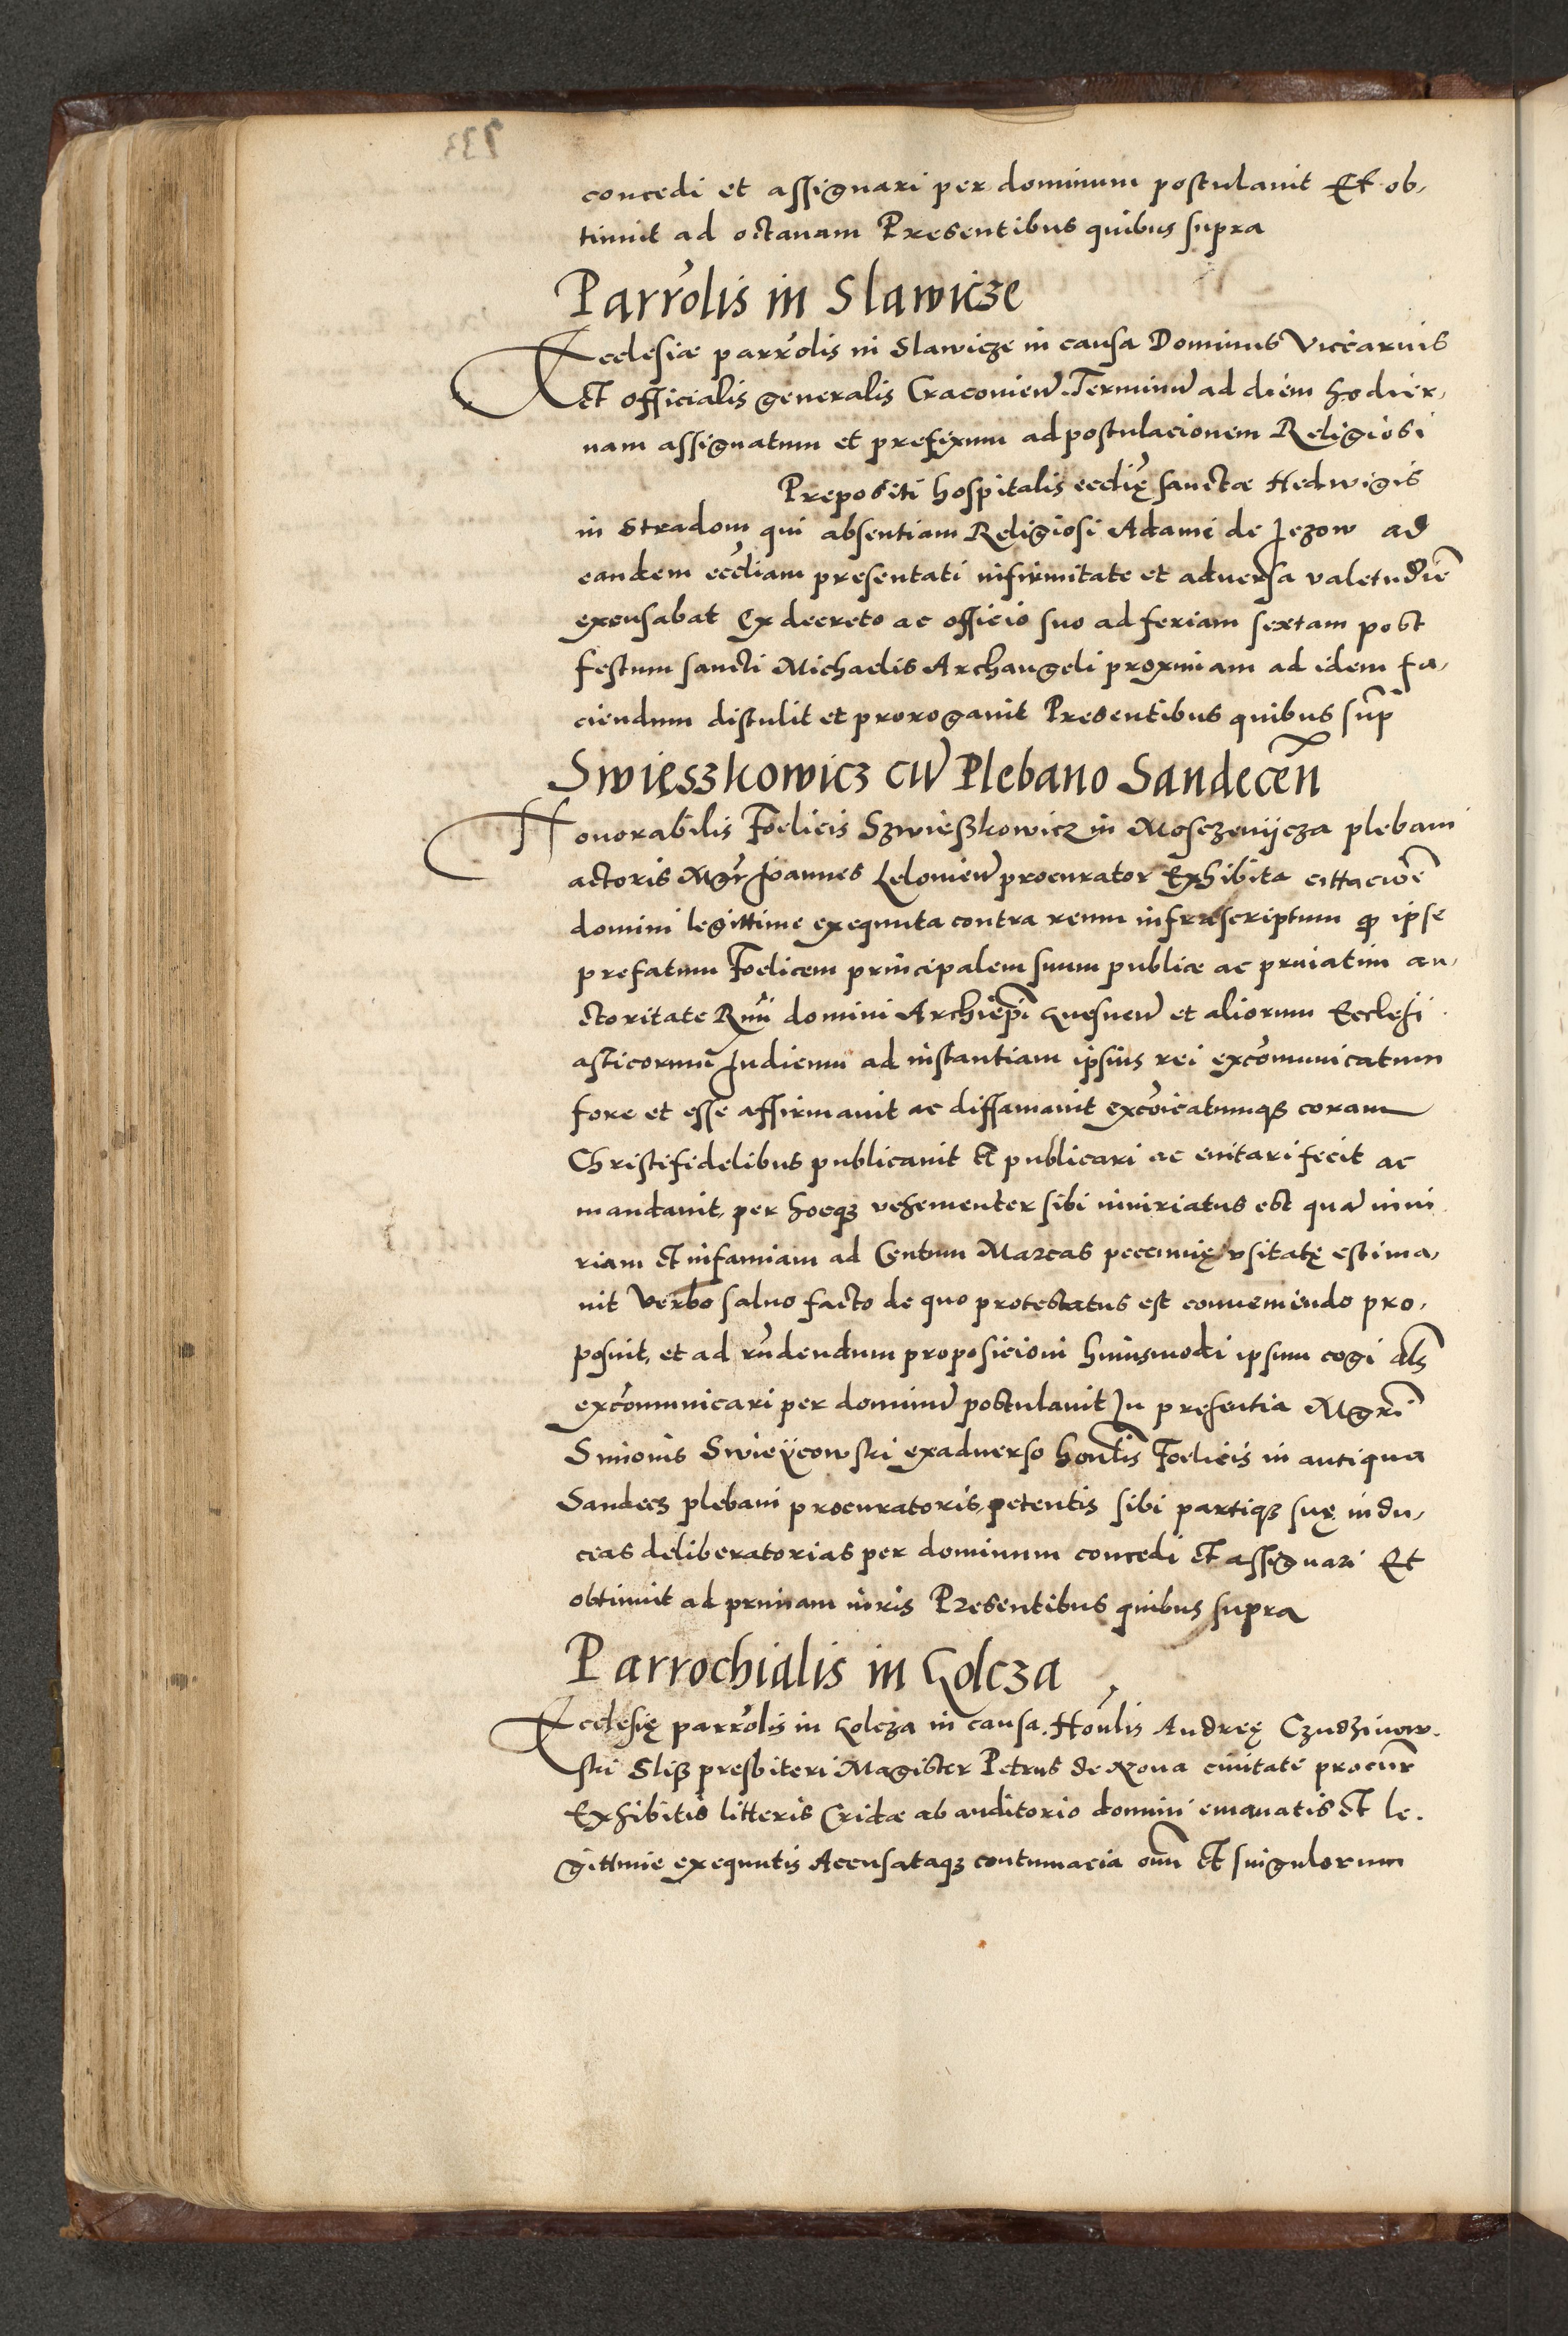 concedi et assignari per dominum postulavit Et ob,
tinuit ad octavam Presentibus quibus supra
Parrolis in Slawicze
Ecclesiæ parrolis in Slawicze in causa Dominus Viccarius
et officialis generalis Cracovien Terminu ad diem hodier,
nam assignatum et prefixum ad postulacionem Religiosi
Prepositi hospitalis ecclię sanctæ Hedwigis
in Stradom qui absentiam Religiosi Adami de Jezow ad
eandem eccliam presentati infirmitate et adversa valetudie
excusabat Ex decreto ac officio suo ad feriam sextam post
festum sancti Michaelis Archangeli proximam ad idem fa,
ciendum distulit et prorogavit Presentibus quibus sup
Swięszkowicz cu Plebano Sandecen
Honorabilis Foelicis Szwießkowicz in Mosczenijcza plebani
actoris Mgr Joannes Lelovien procurator Exhibita cittacioe
domini legittime exequuta contra reum infrascriptum q ipse
prefatum Foelicem principalem suum publice ac privatim au,
ctoritate Rmi domini Archiepi Gnesnen et aliorum Ecclesi
asticorum Judicum ad instantiam ipsius rei excomunicatum
fore et esse affirmavit ac diffamavit excoicatumq coram
Christifidelibus publicavit et publicari ac evitari fecit ac
mandavit, per hocq vehementer sibi iniuriatus est qua iniu
riam et infamiam ad Centum Marcas pecunię usitatę estima,
vit Verbo salvo facto de quo protestatus est conveniendo pro,
posuit, et ad rndendum proposicioni huiusmodi ipsum cogi als
excomunicari per dominu postulavit In presentia Mgri
Simonis Swieijcowski exadverso honlis Foelicis in antiqua
Sandecz plebani procuratoris, petentis sibi partiq suę indu,
ceas deliberatorias per dominum concedi et assignari Et
obtinuit ad primam iuris Presentibus quibus supra
Parrochialis in Golcza
Ecclesię parrolis in Golcza in causa. Honlis Andreę Czudzinow,
ski Sliß presbiteri Magister Petrus de Nova civitate procur
Exhibitis litteris Cridæ ab auditorio domini emanatis et le,
gittime exequutis Accusataq contumacia oim et singulorum